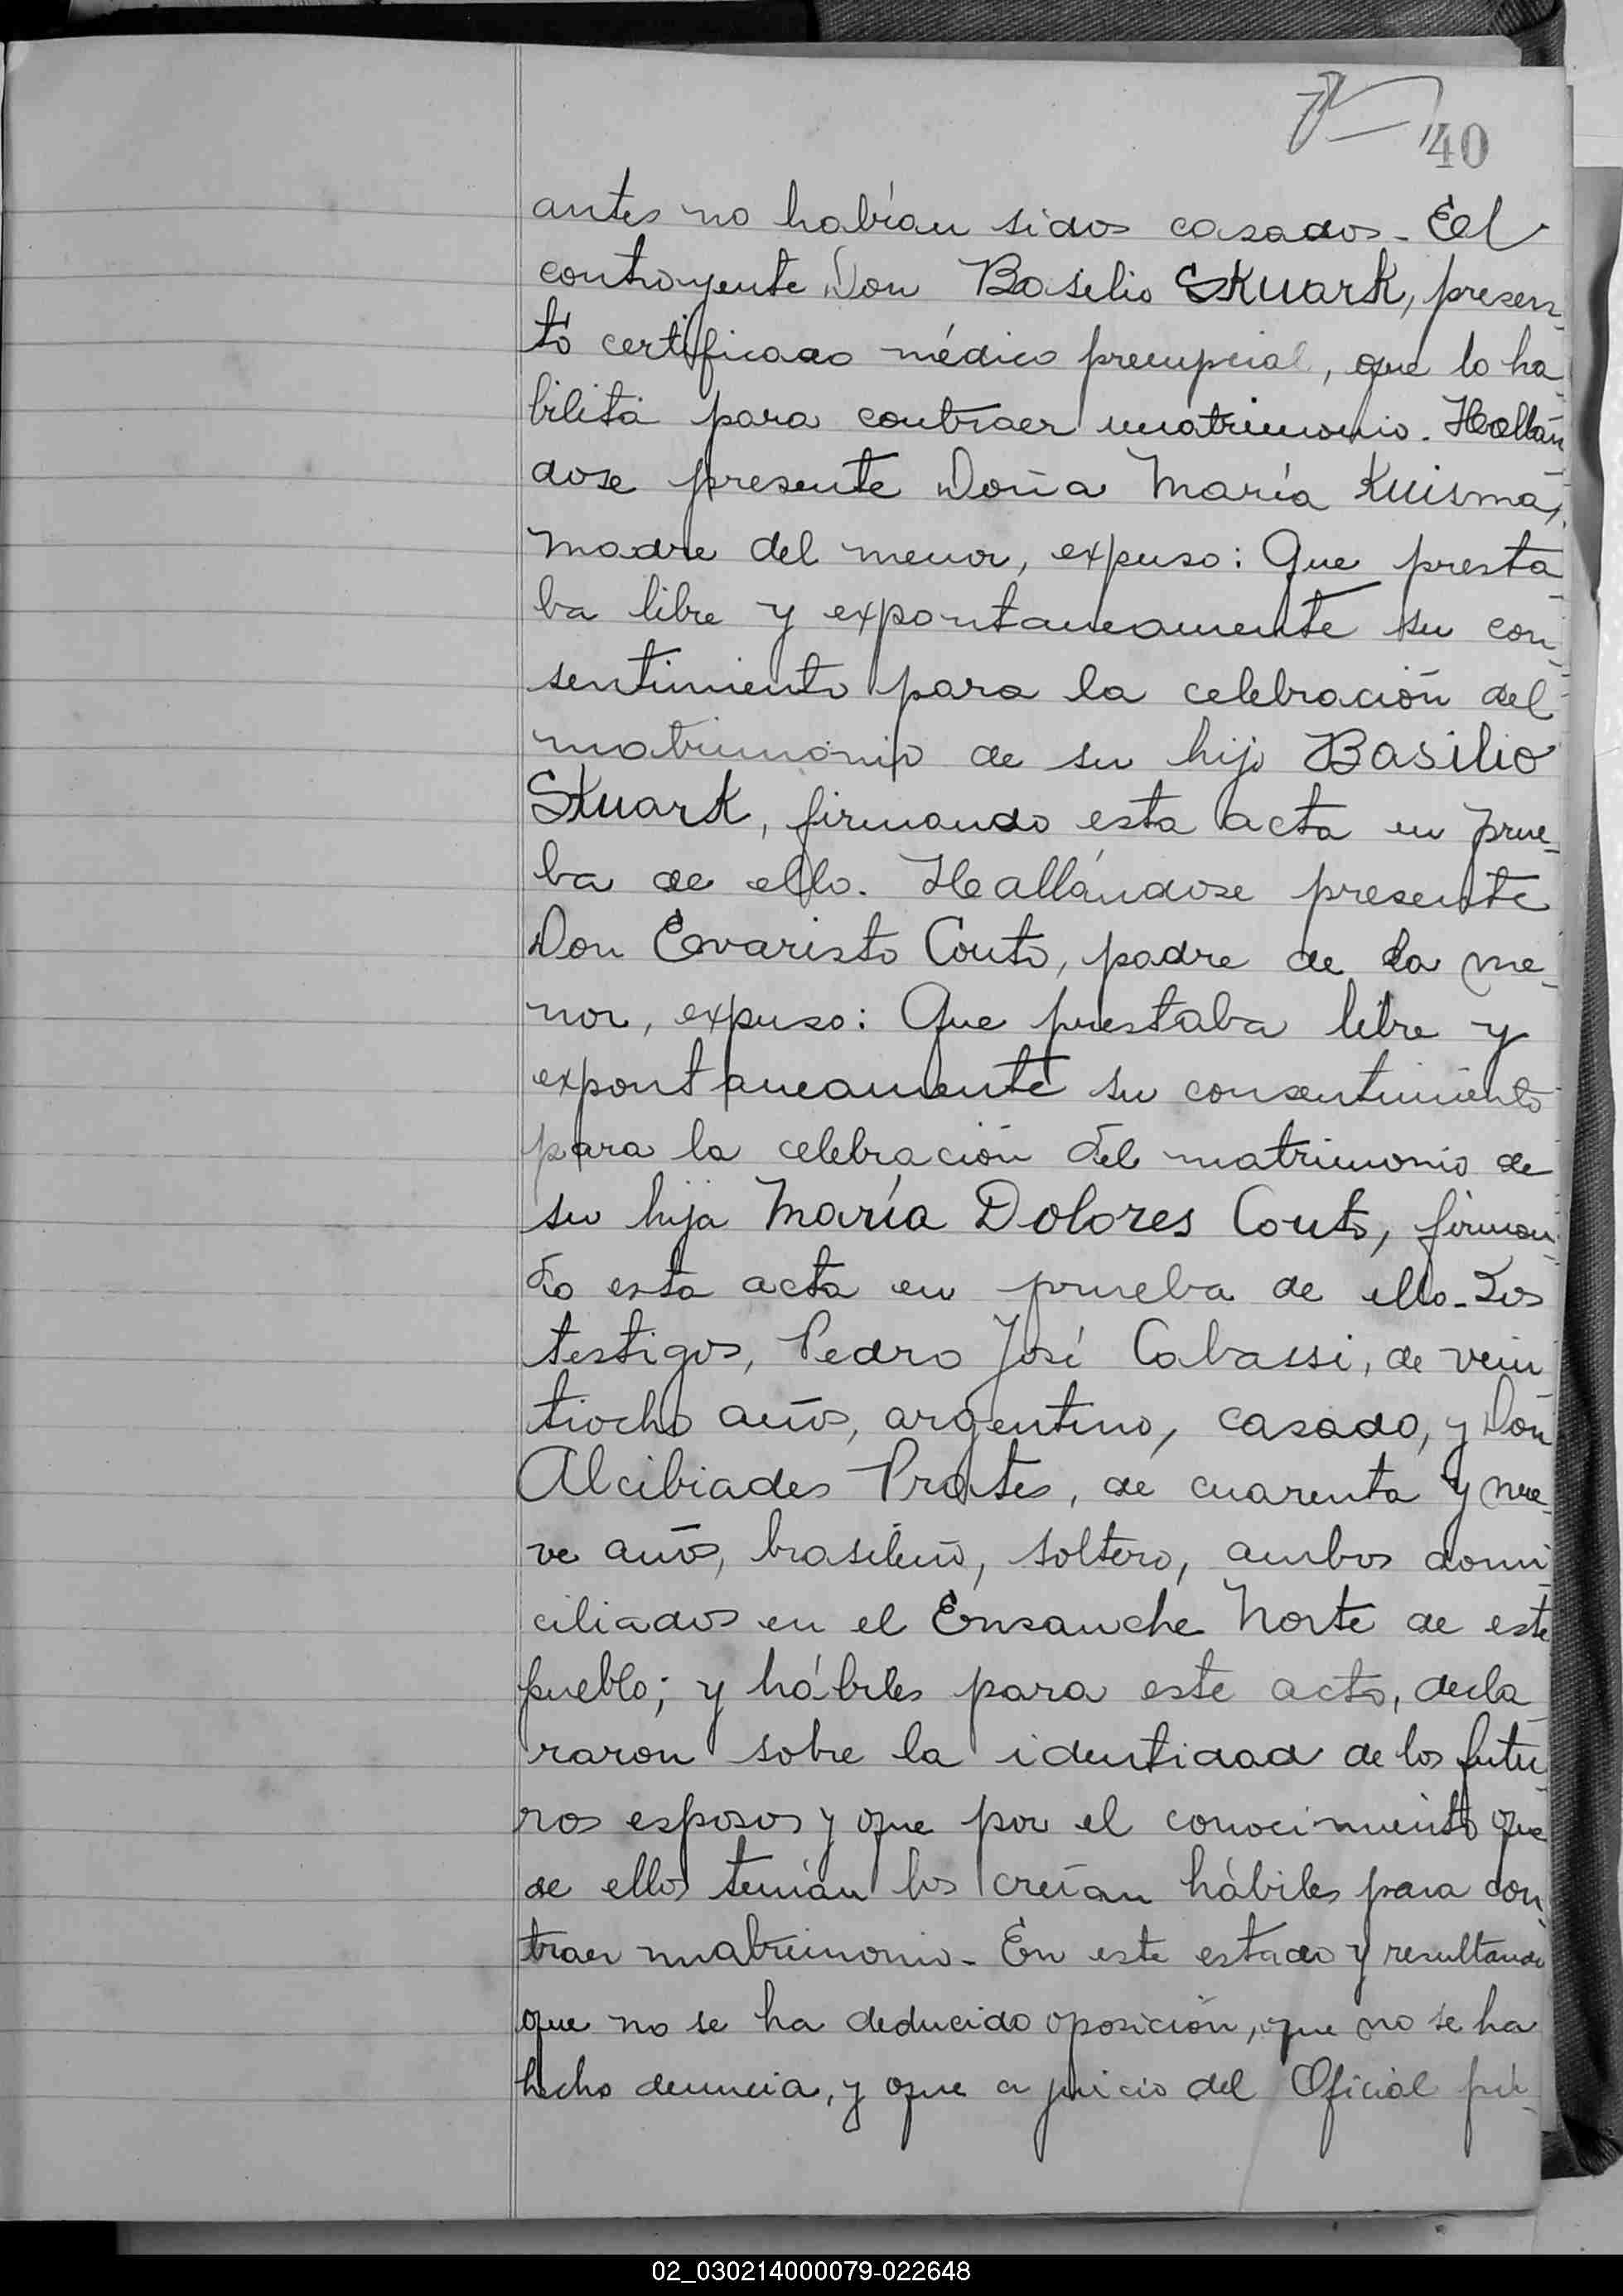 40
antes no habían sidos casados - El
contrayente Don Basilio SKuarK, presen-
tó certificado médico prenupcial, que lo ha-
bilita para contraer matrimonio. Hallán-
dose presente Doña María Kuisma,
madre del menor, expuso: Que presta-
ba libre y expontaneamente su con-
sentimiento para la celebración del
matrimonio de su hijo Basilio
SKuarK, firmando esta acta en prue-
ba de ello. Hallándose presente
Don Evaristo Couto, padre de la me-
nor, expuso: Que prestaba libre y
expontaneamente su consentimiento
para la celebración del matrimonio de
su hija María Dolores Couto, firman-
do esta acta en prueba de ello - Los
testigos, Pedro José Cabassi, de vein-
tiocho años, argentino, casado, y Don
Alcibiades Prates, de cuarenta y nue-
ve años, brasileño, soltero, ambos domi-
ciliados en el Ensanche Norte de este
pueblo; y hábiles para este acto, decla-
raron sobre la identidad de los futu-
ros esposos y que por el conocimiento que
de ellos tenían los creían hábiles para con-
traer matrimonio - En este estado y resultando
que no se ha deducido oposición, que no se ha
hecho denuncia, y que a juicio del Oficial pú-
02_030214000079-022648